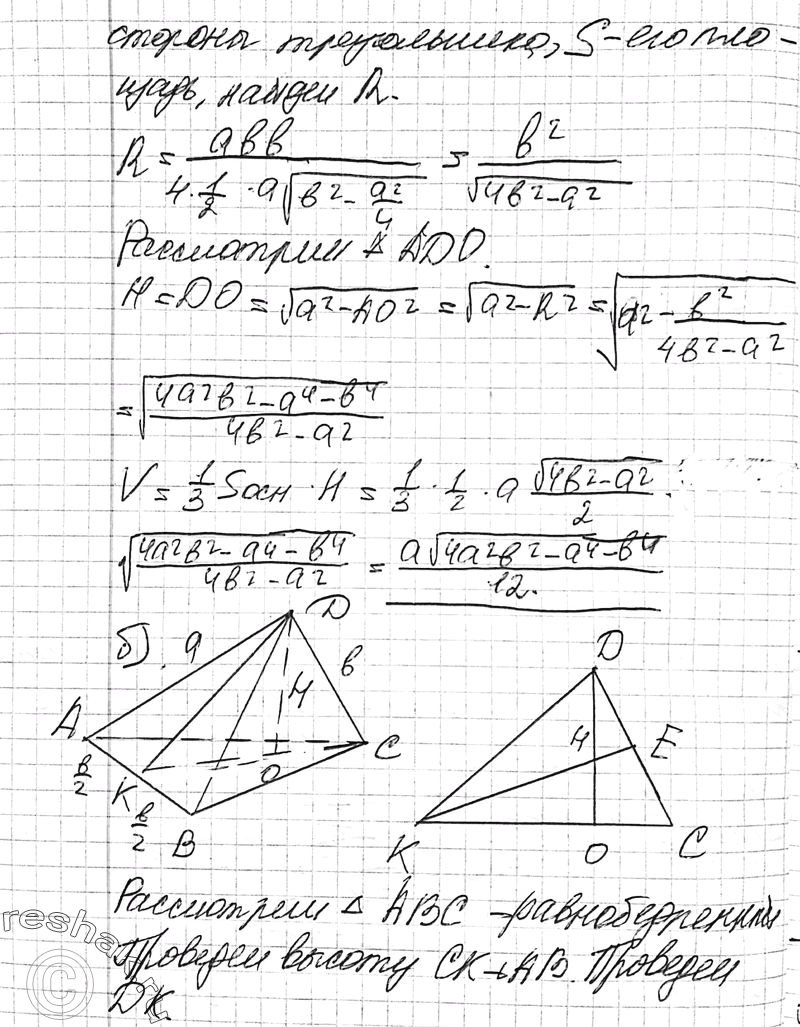 стороны треугольника, S-его пло-
щадь, найдем R.
R = abb / (4·1/2·a√(b²-a²/4)) = b² / √(4b²-a²)
Рассмотрим △ ADO.
H=DO=√(a²-AO²) = √(a²-R²) = √(a²-b²/(4b²-a²))
=√((4a²b²-a⁴-b⁴)/(4b²-a²))
V = 1/3 Sосн·H = 1/3·1/2·a √(4b²-a²)/2 ·
√((4a²b²-a⁴-b⁴)/(4b²-a²)) = a√(4a²b²-a⁴-b⁴)/12.
б) a D b H A C b/2 K O b/2 B
D H E K O C
Рассмотрим △ ABC -равнобедренный
Проведем высоту CK⊥AB. Проведем
DK.
resha
©